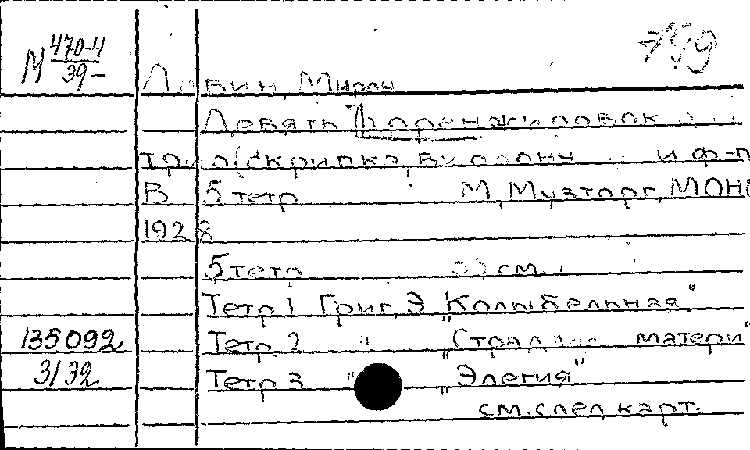 М 470-4
39-
799
Л вин, Мирон
Девять аранжировок
трио (скрипка, виолонч и ф-п
В 5 тетр М, Музторг, МОНО
1928
5 тетр 33 см.
Тетр 1 Григ, Э „Колыбельная"
135092 Тетр. 2 " „Страд матери"
3/32 Тетр 3 " „Элегия"
см. след карт.